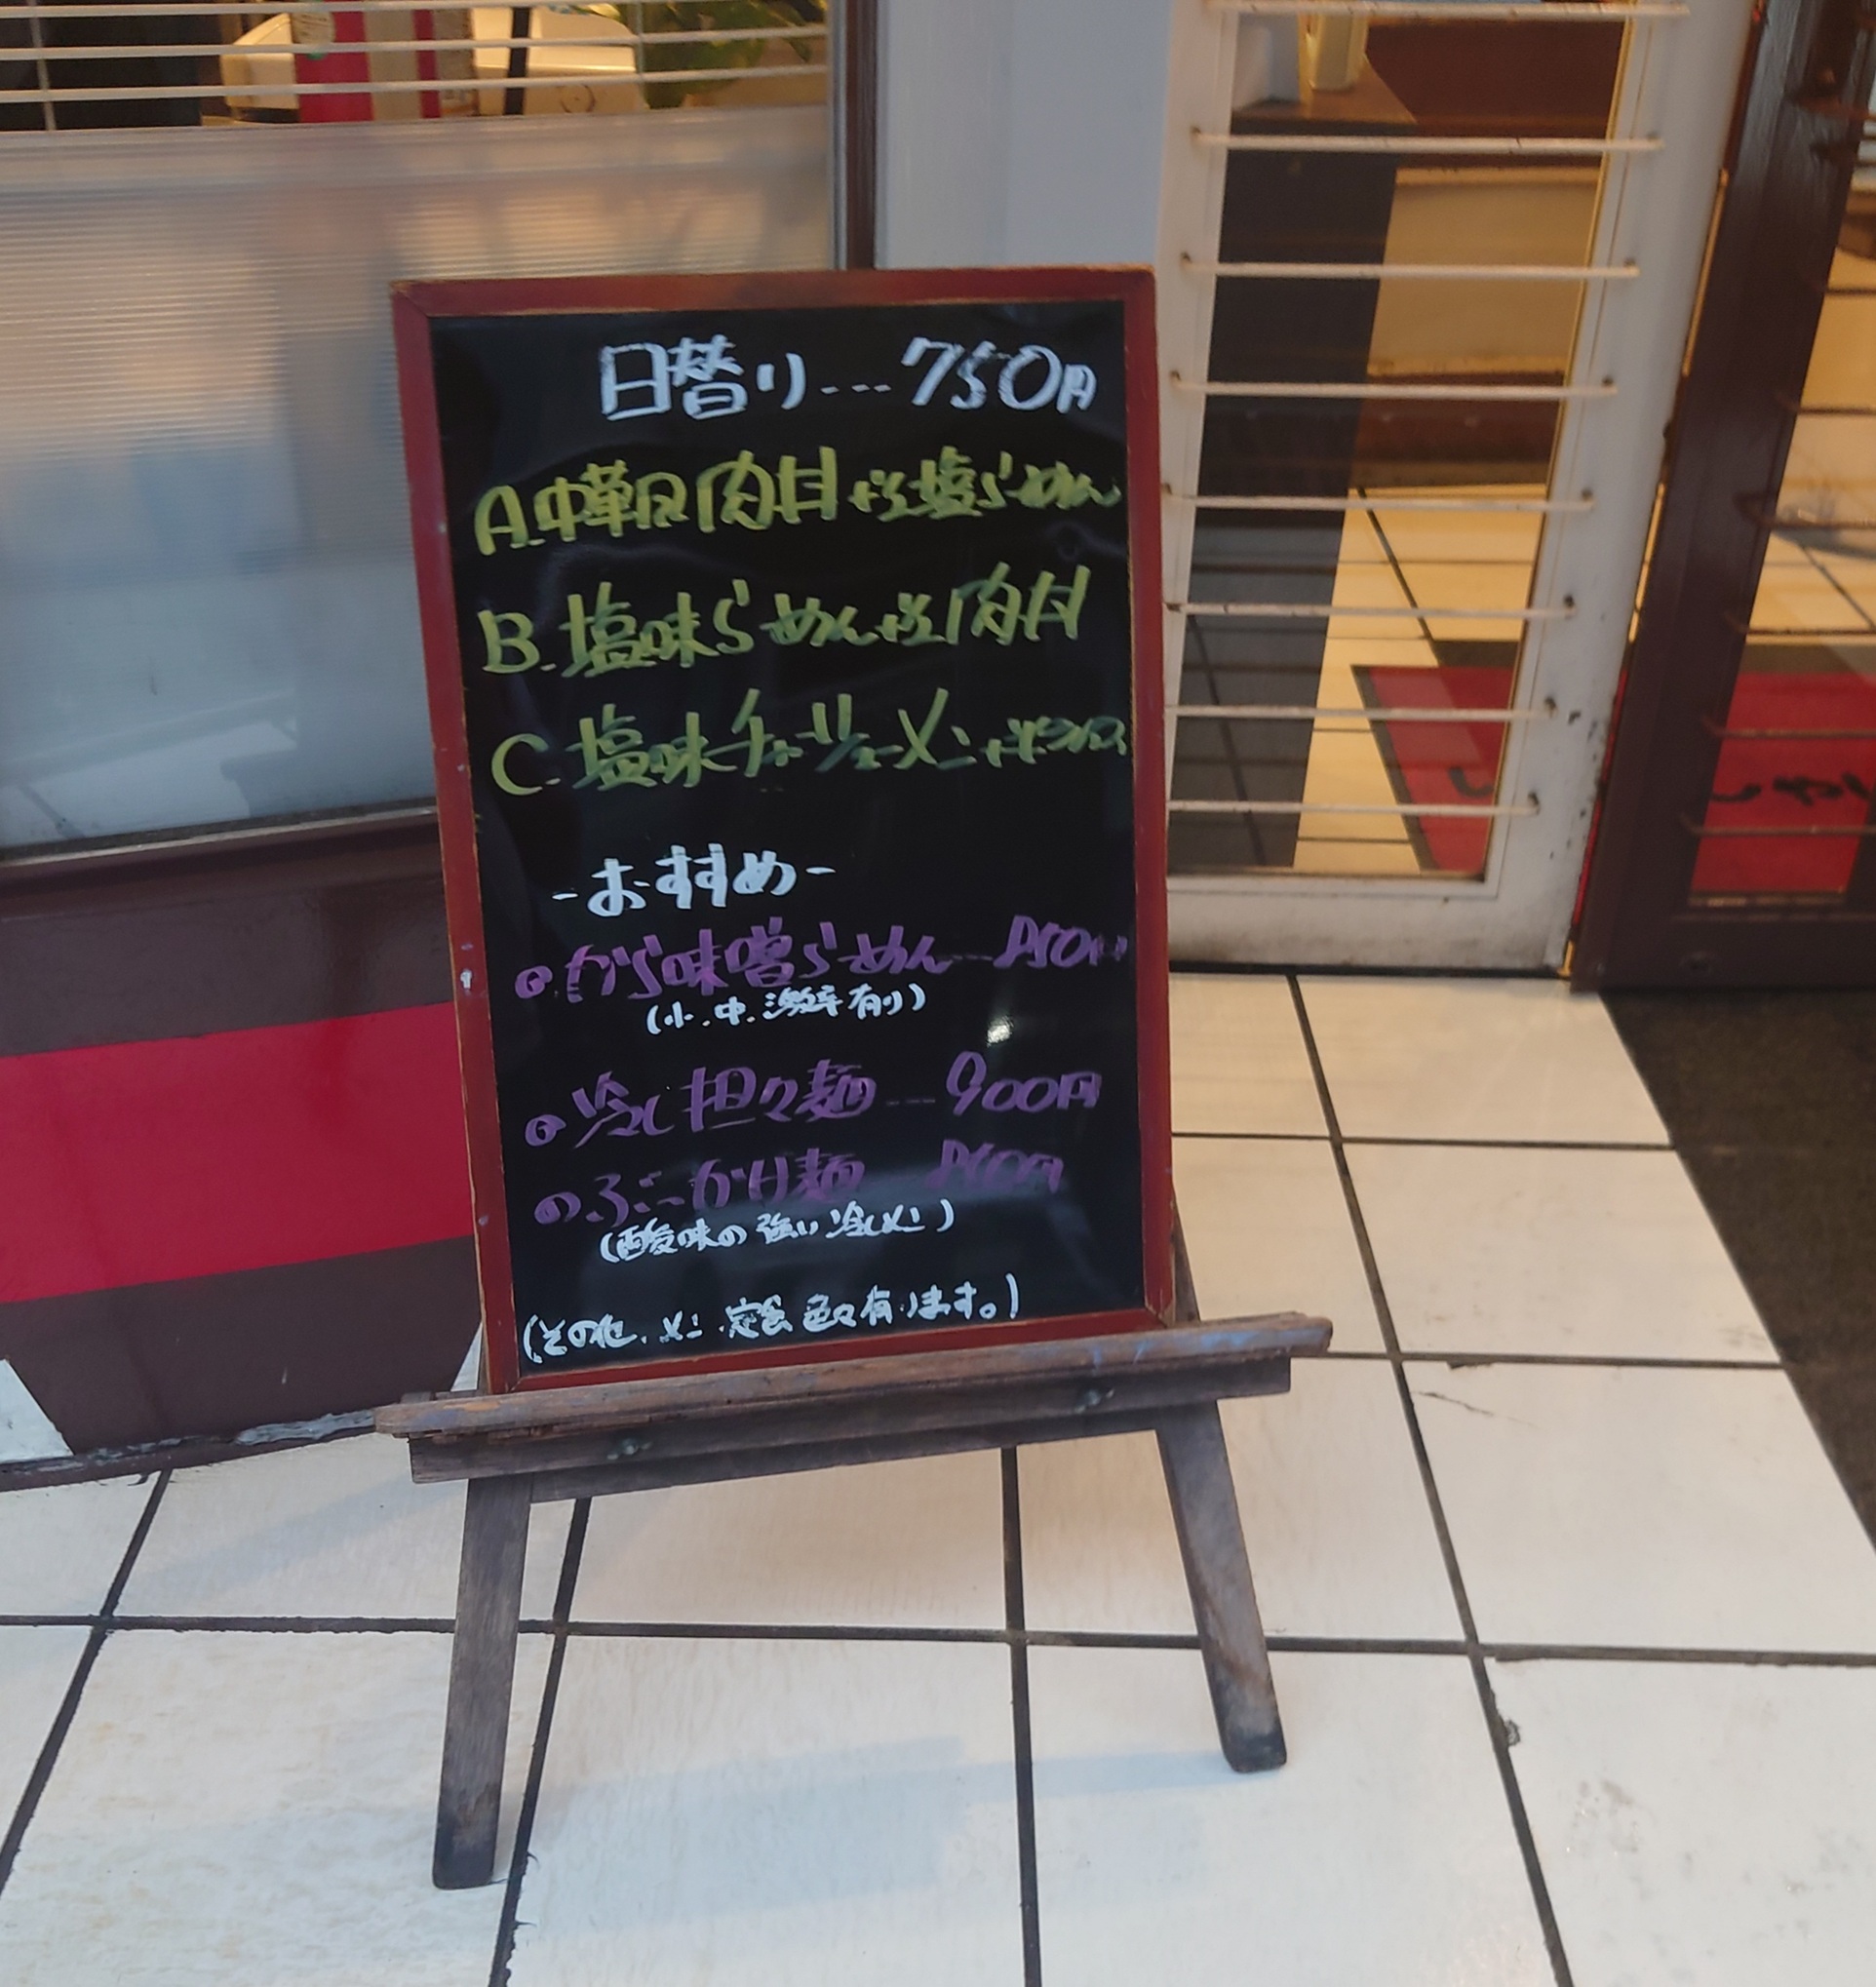 日替り...750円
A.中華風肉丼+半塩らーめん
B.塩味らーめん+半肉丼
C.塩味チャーシューメン+半ライス
-おすすめ-
から味噌らーめん...850円
(小.中.激辛有り)
冷し担々麺...900円
ぶっかけ麺 850円
(酸味の強い冷しメン)
(その他.メン.定食色々有ります。)